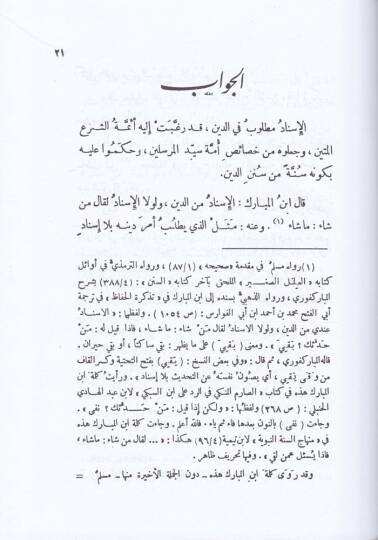 ٢١
الجواب
الإسنادُ مطلوبٌ في الدين ، قد رغَّبَتْ إليه أئمَّةُ الشرع
المتين ، وجعلوه من خصائص أُمَّة سيِّد المرسلين ، وحكَمُوا عليه
بكونه سُنَّةً من سُنَنِ الدين .
قال ابنُ المبارك : الإسنادُ من الدين ، ولولا الإسنادُ لقال من
شاء : ماشاء (١) . وعنه : مَثَلُ الذي يطلُبُ أمرَ دينِه بلا إسنادٍ
(١) رواه مسلم في مقدمة «صحيحه» (٨٧/١) ، ورواه الترمذي في أوائل
كتابه « العِلَل الصغير » اللحق بآخر كتابه « السنن » : (٣٨٨/٤) بشرح
المباركفوري ، ورواه الذهبي بسنده إلى ابن المبارك في « تذكرة الحفاظ » في ترجمة
أبي الفتح محمد بن أحمد ابن أبي الفوارس : (ص ١٠٥٤) . ولفظها : « الإسناد
عندي من الدين ، ولولا الاسناد لقال مَنْ شاء : ما شاء ، فاذا قيل له : مَنْ
حدَّثك ؟ بَقِيَ » . ومعنى (بَقِيَ) على ما يظهر : بقي ساكتاً ، أو بقي حيران .
قاله المباركفوري ، ثم قال : «وفي بعض النسخ : (يَقِي) بفتح التحتية وكسر القاف
من وَقى يَقِي ، أي يصُونُ نفسَه عن التحديث بلا إسناد» . ورأيتُ كلمة ابن
المبارك هذه في كتاب « الصارم المنكي في الرد على ابن السبكي » لابن عبد الهادي
الحنبلي : (ص ٢٦٨) ولفظها : « ولكن إذا قيل : مَنْ حدَّثك ؟ نفى » .
وجاءت ( نفى ) بالنون بعدها فاء ثم ياء . فالله أعلم . وجاءت كلمة ابن المبارك هذه
في « منهاج السنة النبوية » لابن تيمية (٩٦/٤) هكذا : « ... لقال من شاء : ماشاء ،
فاذا سُئل عمن لقي » . وفيها تحريف ظاهر .
وقد رَوَى كلمة ابن المبارك هذه - دون الجملة الأخيرة منها - مسلم =